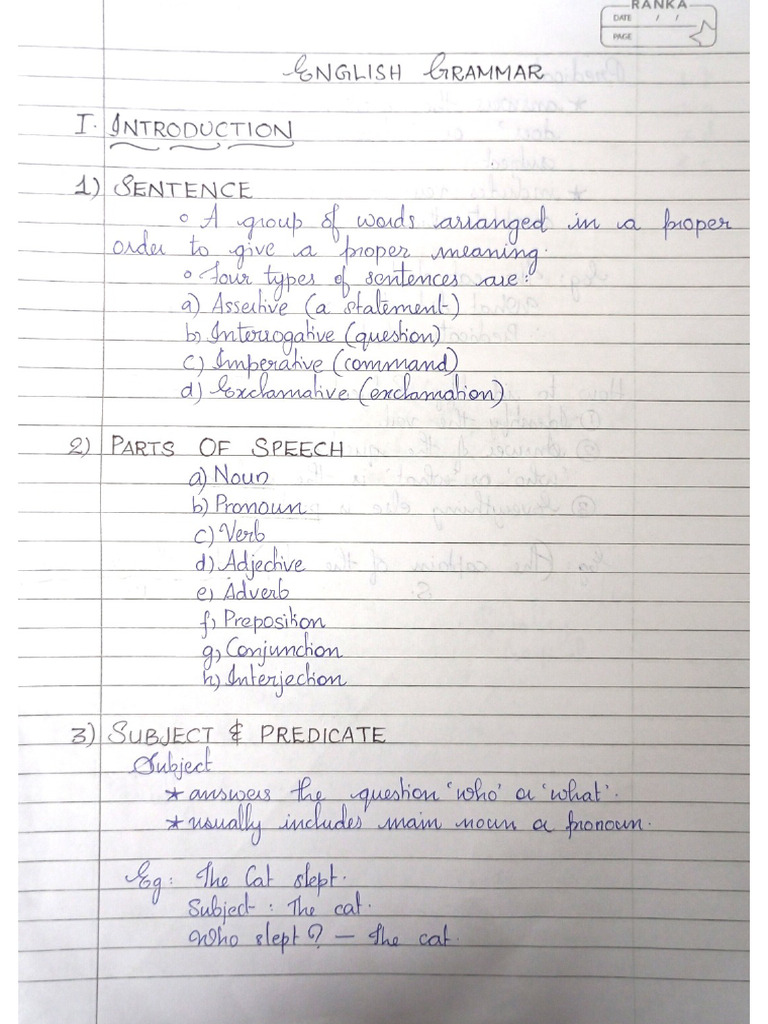 RANKA
DATE / /
PAGE
ENGLISH GRAMMAR
I. INTRODUCTION
1) SENTENCE
◦ A group of words arranged in a proper
order to give a proper meaning.
◦ Four types of sentences are:
a) Assertive (a statement)
b) Interrogative (question)
c) Imperative (command)
d) Exclamative (exclamation)
2) PARTS OF SPEECH
a) Noun
b) Pronoun
c) Verb
d) Adjective
e) Adverb
f) Preposition
g) Conjunction
h) Interjection
3) SUBJECT & PREDICATE
Subject
* answers the question 'who' or 'what'.
* usually includes main noun or pronoun.
Eg: The Cat slept.
Subject: The cat.
Who slept? – The cat.